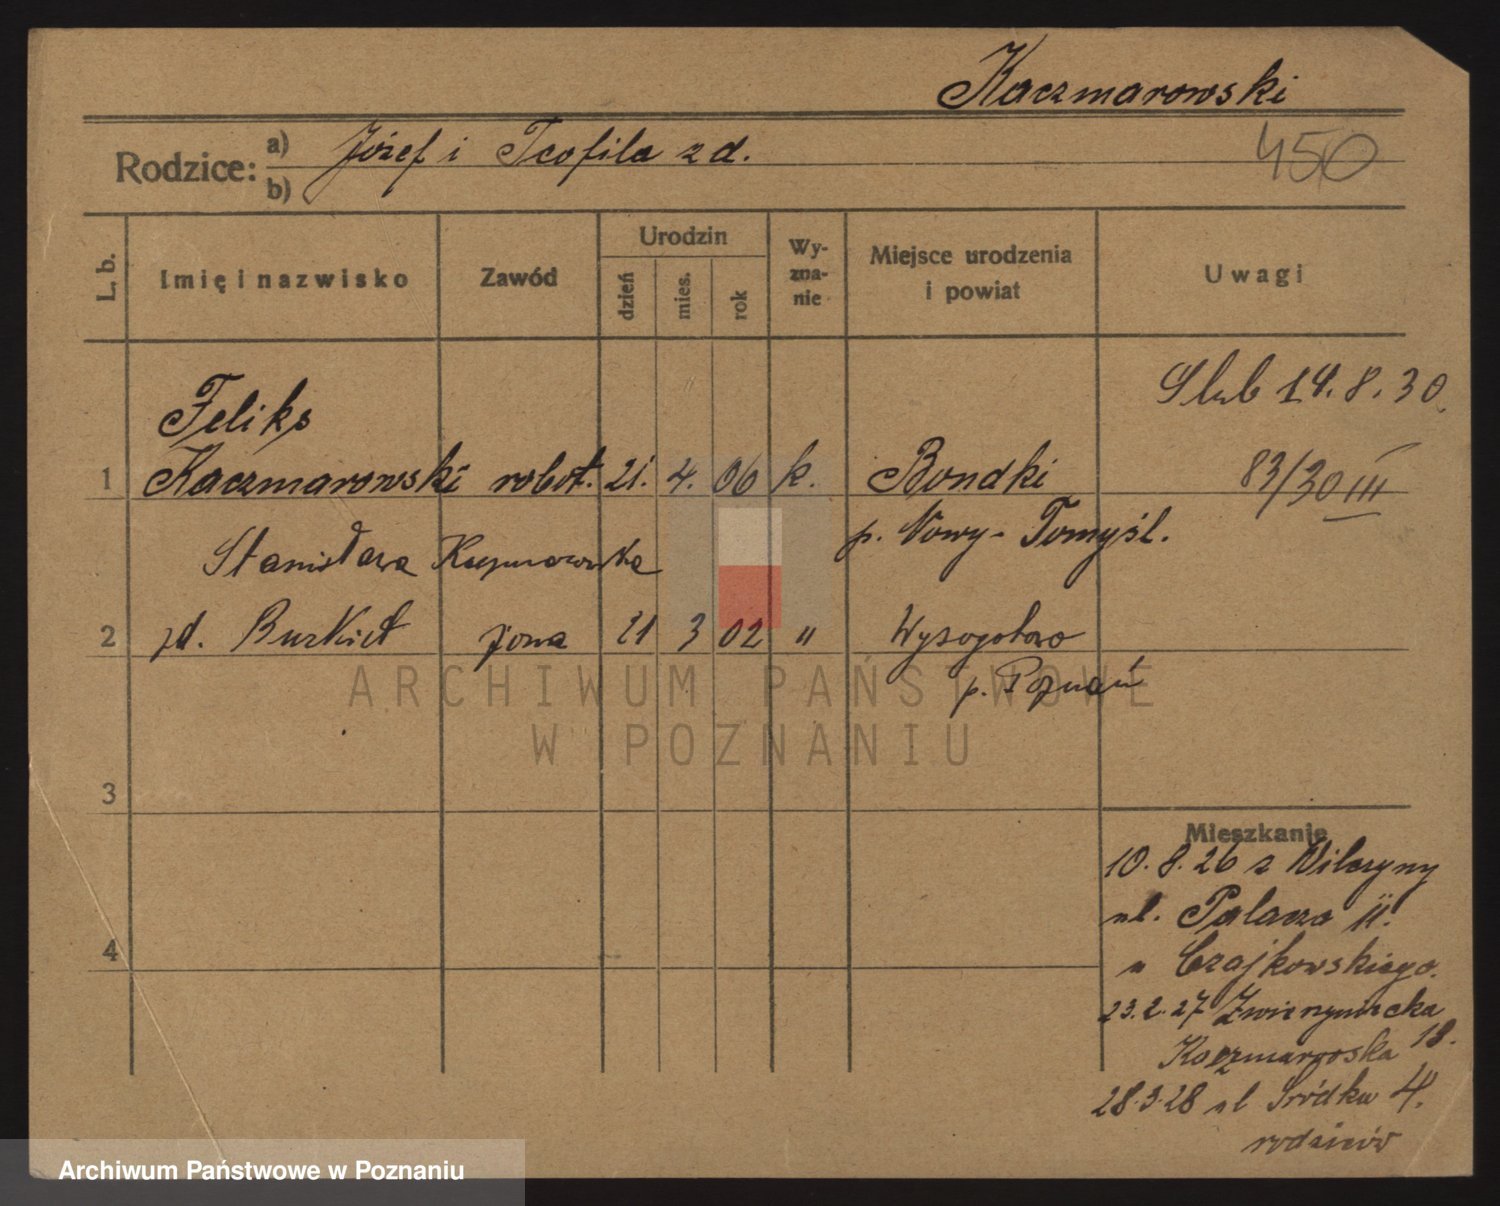 Kaczmarowski
450
Rodzice: a) Józef i Teofila zd.
b)
L. b.
Imię i nazwisko
Zawód
Urodzin
dzień
mies.
rok
Wy-
zna-
nie
Miejsce urodzenia
i powiat
Uwagi
Slub 14.8.30.
Feliks
1 Kaczmarowski robot. 21. 4. 06 k. Bondki 83/30 III
p. Nowy-Tomyśl.
Stanisława Kaczmarowska
2 zd. Burkiet żona 21 3 02 " Wysogotowo
p. Poznań
ARCHIWUM PAŃSTWOWE
W POZNANIU
3
Mieszkanie
10.8.26 z Wilczyny
ul. Palacza 11.
u Czajkowskiego.
4
23.2.27 Zwierzyniecka
18.
28.3.28 ul Śródka 4.
rodziców
Archiwum Państwowe w Poznaniu